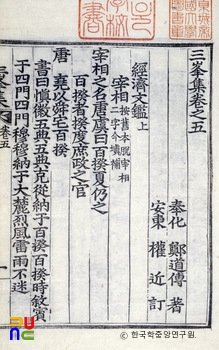 三峯集卷之五
奉化 鄭道傳 著
安東 權近 訂
經濟文鑑上
宰相 按舊本脫宰相
二字今塡補
宰相之名唐虞曰百揆夏仍之
百揆者揆度庶政之官
唐 堯以舜宅百揆
書曰愼徽五典五典克從納于百揆百揆時敘賓
于四門四門穆穆納于大麓烈風雷雨不迷
卷五
© 한국학중앙연구원